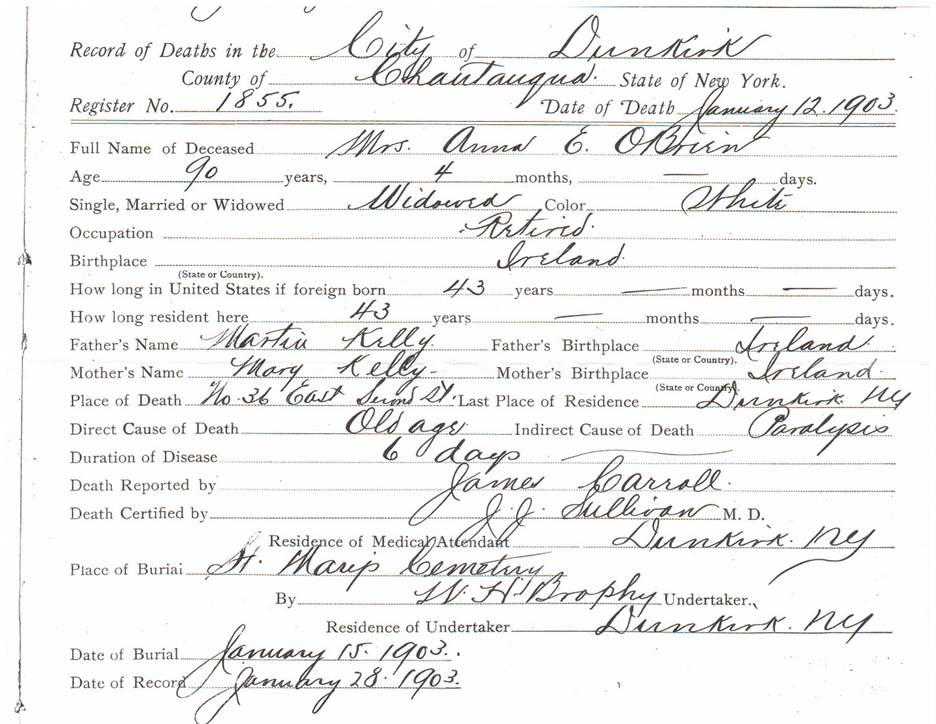 Record of Deaths in the City of Dunkirk
County of Chautauqua. State of New York.
Register No. 1855. Date of Death January 12. 1903.
Full Name of Deceased Mrs. Anna E. OBrien
Age 90 years, 4 months, — days.
Single, Married or Widowed Widowed Color White
Occupation Retired.
Birthplace Ireland.
(State or Country).
How long in United States if foreign born 43 years — months — days.
How long resident here 43 years — months — days.
Father's Name Martin Kelly. Father's Birthplace Ireland.
(State or Country).
Mother's Name Mary Kelly- Mother's Birthplace Ireland.
(State or Country).
Place of Death No. 36 East Second St. Last Place of Residence Dunkirk NY
Direct Cause of Death Old age Indirect Cause of Death Paralysis
Duration of Disease 6 days
Death Reported by James Carroll.
Death Certified by J. J. Sullivan M. D.
Residence of Medical Attendant Dunkirk. NY
Place of Burial St. Marys Cemetery
By W. H. Brophy Undertaker.
Residence of Undertaker Dunkirk. NY
Date of Burial January 15. 1903.
Date of Record January 28. 1903.